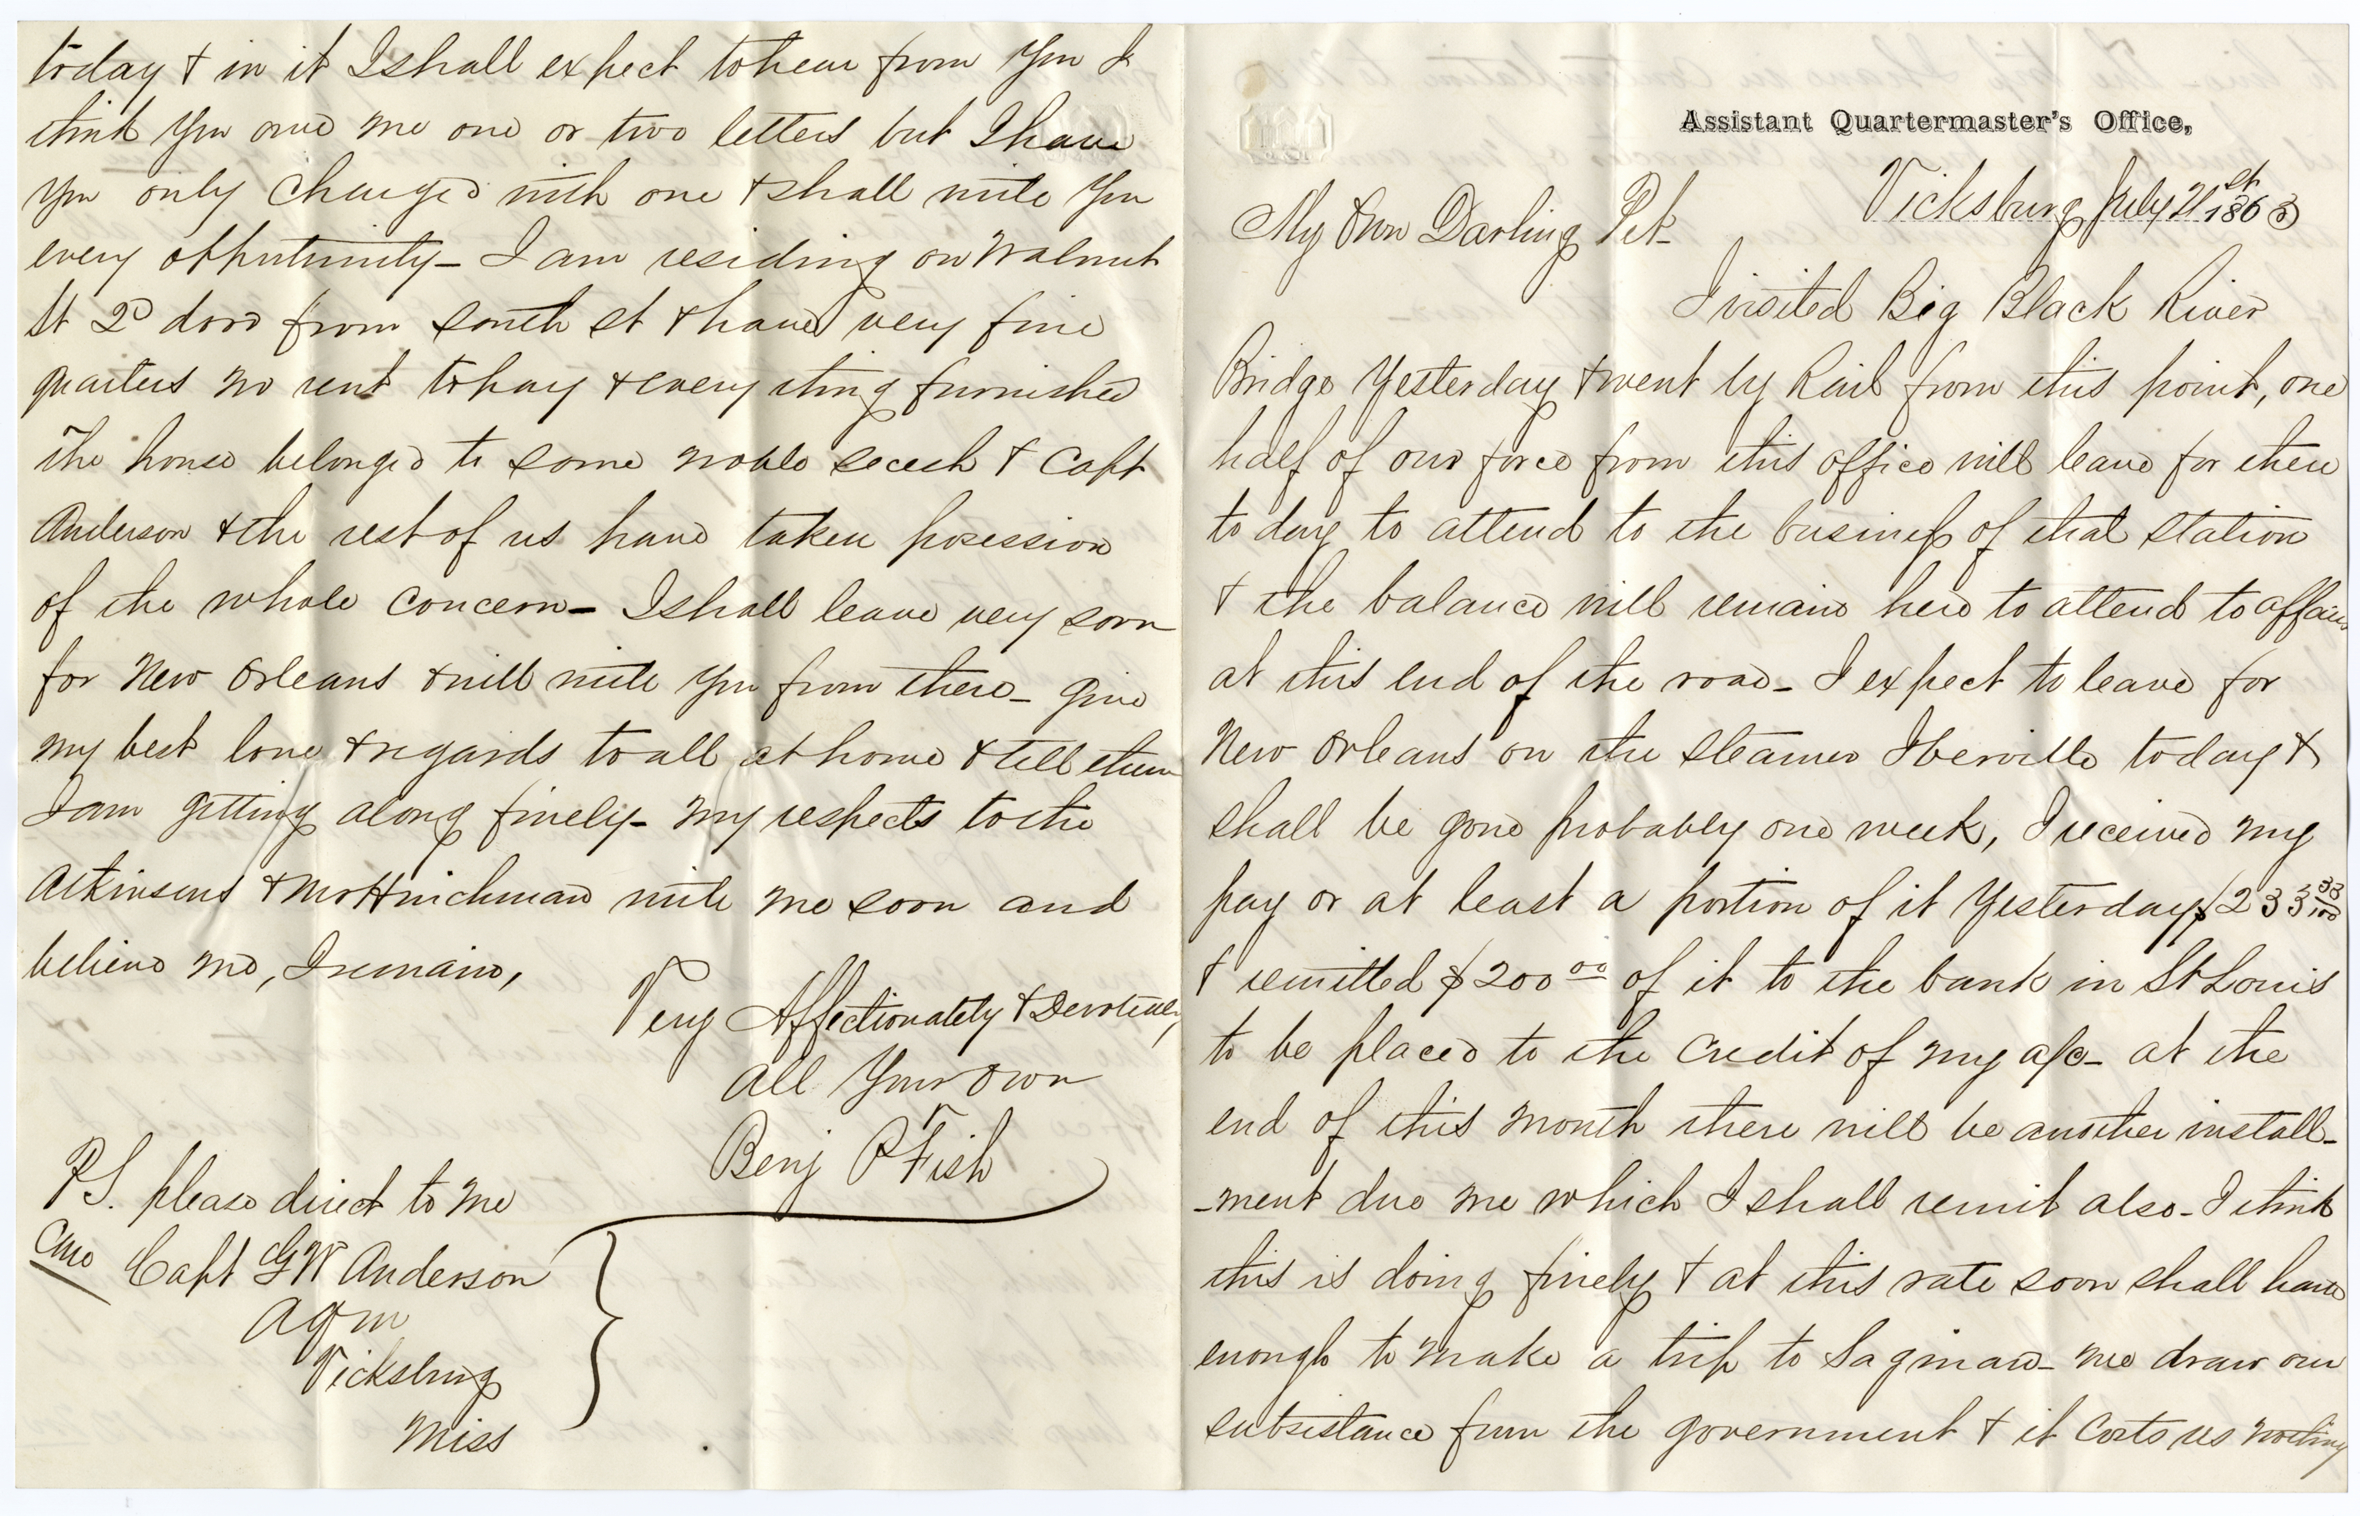 Assistant Quartermaster's Office,
Vicksburg July 21st 1863
My Own Darling Pet
I visited Big Black River
Bridge Yesterday & went by Rail from this point, one
half of our force from this office will leave for there
to day to attend to the business of that station
& the balance will remain here to attend to affairs
at this end of the road- I expect to leave for
New Orleans on the steamer Iberville today &
shall be gone probably one week, I received my
pay or at least a portion of it Yesterday, $233 33/100
& remitted $200 00 of it to the bank in St Louis
to be placed to the credit of my a/c- at the
end of this month there will be another install-
-ment due me which I shall remit also- I think
this is doing finely & at this rate soon shall have
enough to make a trip to Saginaw- we draw our
subsistance from the government & it costs us nothing
today & in it I shall expect to hear from You I
think You owe me one or two letters but I have
You only charged with one & shall write You
every opportunity- I am residing on Walnut
St 2d door from South St & have very fine
quarters no rent to pay & every thing furnished
The house belonged to some noble secesh & Capt
Anderson & the rest of us have taken posession
of the whole concern- I shall leave very soon
for New Orleans & will write You from there- give
my best love & regards to all at home & tell them
I am getting along finely- My respects to the
Atkinsons & Mr Hinchman write me soon and
believe me, I remain,
Very Affectionately & Devotedly,
All Your Own
Benj P Fish
P.S. please direct to me
Care Capt G W Anderson
AQM
Vicksburg
Miss